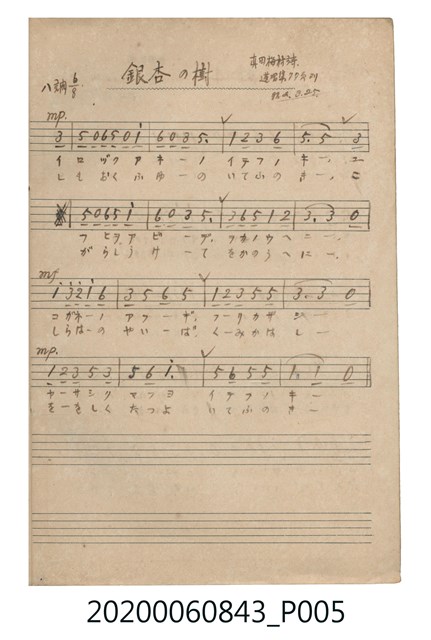 銀杏の樹
真田
八調 6/8
mp.
3 | 5 0 6 5 0 1 | 6 0 3 5. | 1 2 3 6 | 5. 5 3
イロヅク アキーノ イチフノ キー. ユ
しもおくふゆーの いてふの きー. こ
5 0 6 5 1 | 6 0 3 5. | 3 6 5 1 2 | 3. 3 0
フヒヲアビーデ. ヲカノウヘニー.
がらしうけーて をかのうへにー.
mf
1 3 2 1 6 | 3 5 6 5 | 1 2 3 5 5 | 3. 3 0
コガネーノ
しらはーの やいーば. くーみかはしー
mp.
1 2 3 5 3 | 5 6 1. | 5 6 5 5 | 1. 1 0
ヤーサシク マツヨ イチフノ キー
をーをしく たつよ いてふの きー
20200060843_P005